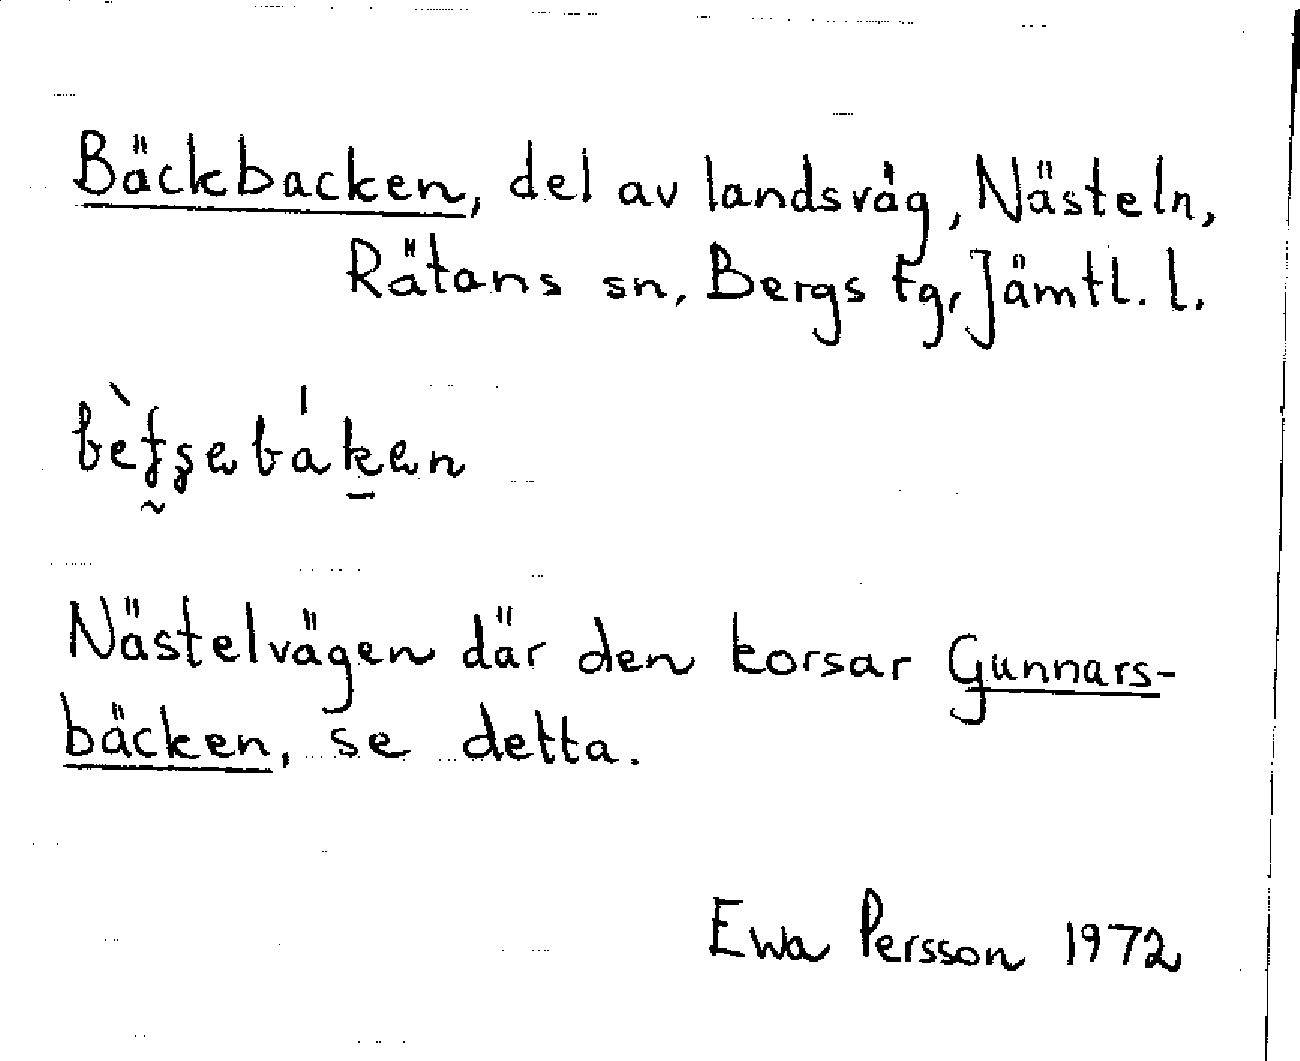 Bäckbacken, del av landsväg, Nästeln,
Rätans sn, Bergs tg, Jämtl. l.
Nästelvägen där den korsar Gunnars-
bäcken, se detta.
Ewa Persson 1972